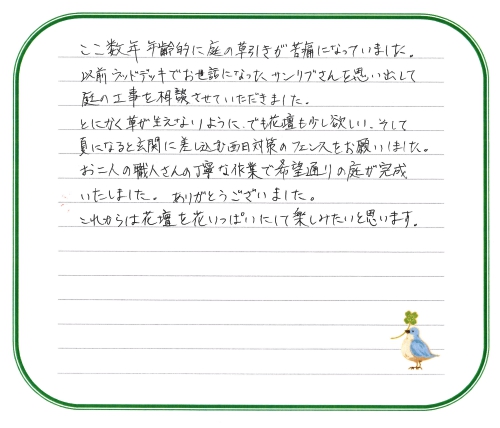 ここ数年 年齢的に庭の草引きが苦痛になっていました。
以前ウッドデッキでお世話になったサンリブさんを思い出して
庭の工事を相談させていただきました。
とにかく草が生えないように、でも花壇も少し欲しい、そして
夏になると玄関に差し込む西日対策のフェンスをお願いしました。
お二人の職人さんの丁寧な作業で希望通りの庭が完成
いたしました。ありがとうございました。
これからは花壇を花いっぱいにして楽しみたいと思います。